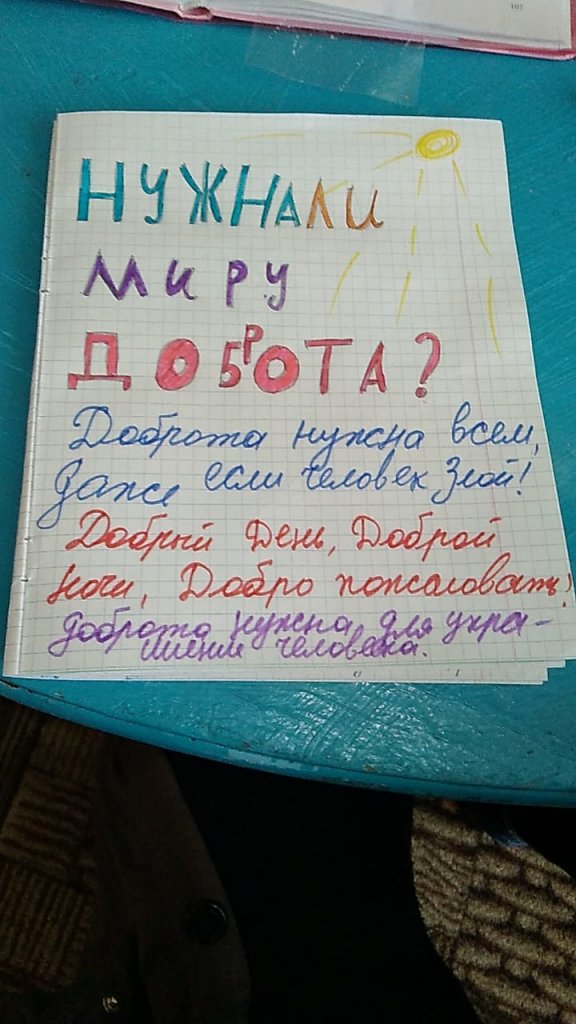 НУЖНА ЛИ
МИРУ
ДОБРОТА?
Доброта нужна всем,
даже если человек Злой!
Добрый День, Доброй
ночи, Добро пожаловать!
доброта нужна для укра-
шения человека.